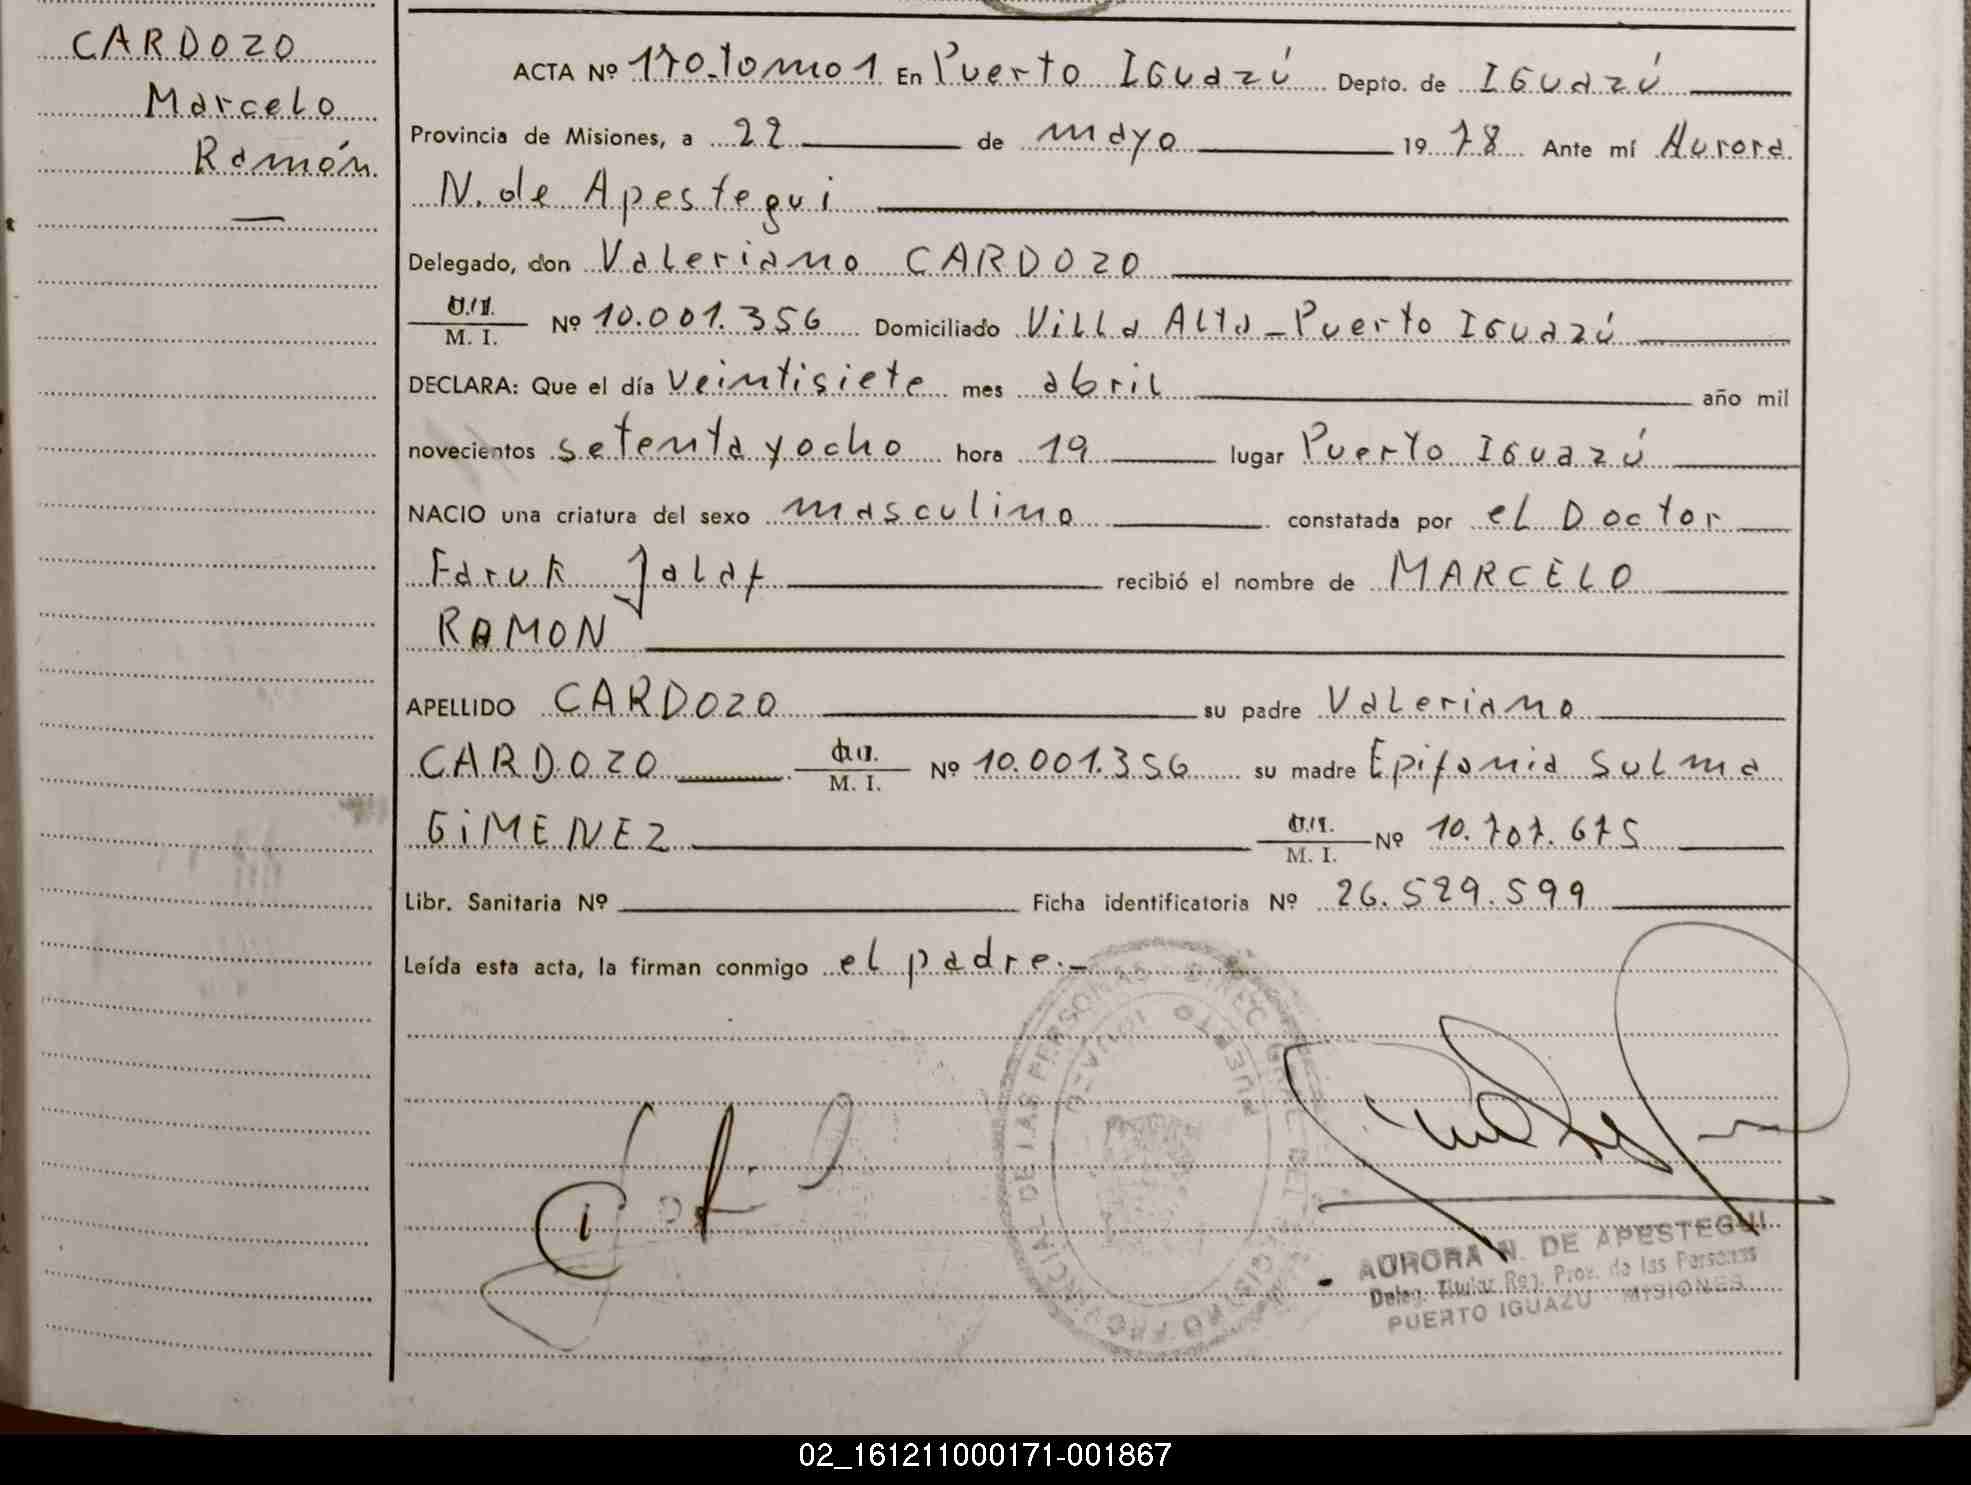 CARDOZO
Marcelo
Ramón.
ACTA Nº 170. Tomo 1 En Puerto Iguazú Depto. de Iguazú
Provincia de Misiones, a 22 de mayo 1978 Ante mí Aurora
N. de Apestegui
Delegado, don Valeriano CARDOZO
M. I. Nº 10.001.356 Domiciliado Villa Alta - Puerto Iguazú
DECLARA: Que el día veintisiete mes abril año mil
novecientos setenta y ocho hora 19 lugar Puerto Iguazú
NACIO una criatura del sexo masculino constatada por el Doctor
Faruk Jalaf recibió el nombre de MARCELO
RAMON
APELLIDO CARDOZO su padre Valeriano
CARDOZO M. I. Nº 10.001.356 su madre Epifania Sulma
GIMENEZ M. I. Nº 10.707.675
Libr. Sanitaria Nº Ficha identificatoria Nº 26.529.599
Leída esta acta, la firman conmigo el padre.-
AURORA N. DE APESTEGUI
Deleg. Titular Reg. Prov. de las Personas
PUERTO IGUAZU MISIONES
02_161211000171-001867